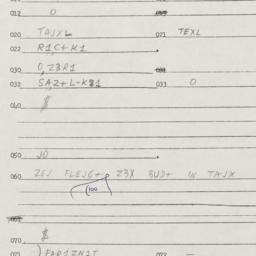 012 O
020 TAJXL 021 TEXL
022 R1C+K1
030 0,Z3R1
032 SAZ+L-K31 033 O
040 $
050 JO
060 ZEJ FLEJG+ Z3X 3UD+ W TAJX
100
070 $
071 072 —